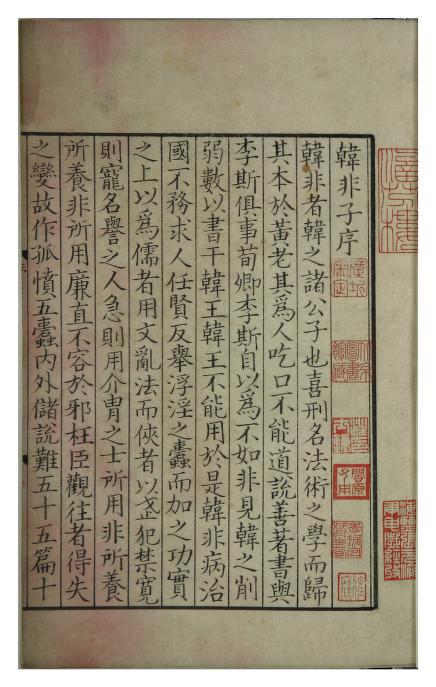 韓非子序
韓非者韓之諸公子也喜刑名法術之學而歸
其本於黃老其為人吃口不能道說善著書與
李斯俱事荀卿李斯自以為不如非見韓之削
弱數以書干韓王韓王不能用於是韓非病治
國不務求人任賢反舉浮淫之蠹而加之功實
之上以為儒者用文亂法而俠者以武犯禁寬
則寵名譽之人急則用介胄之士所用非所養
所養非所用廉直不容於邪枉臣觀往者得失
之變故作孤憤五蠹內外儲說難五十五篇十